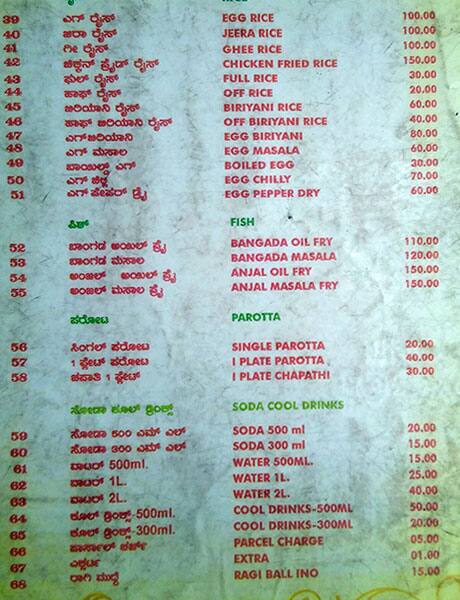 39 ಎಗ್ ರೈಸ್ EGG RICE 100.00
40 ಜೀರಾ ರೈಸ್ JEERA RICE 100.00
41 ಗೀ ರೈಸ್ GHEE RICE 100.00
42 ಚಿಕ್ಕನ್ ಫ್ರೈಡ್ ರೈಸ್ CHICKEN FRIED RICE 150.00
43 ಫುಲ್ ರೈಸ್ FULL RICE 30.00
44 ಹಾಫ್ ರೈಸ್ OFF RICE 20.00
45 ಬಿರಿಯಾನಿ ರೈಸ್ BIRIYANI RICE 60.00
46 ಹಾಫ್ ಬಿರಿಯಾನಿ ರೈಸ್ OFF BIRIYANI RICE 40.00
47 ಎಗ್‌ಬಿರಿಯಾನಿ EGG BIRIYANI 80.00
48 ಎಗ್ ಮಸಾಲ EGG MASALA 60.00
49 ಬಾಯಿಲ್ಡ್ ಎಗ್ BOILED EGG 30.00
50 ಎಗ್ ಚಿಲ್ಲಿ EGG CHILLY 70.00
51 ಎಗ್ ಪೇಪರ್ ಡ್ರೈ EGG PEPPER DRY 60.00
ಫಿಶ್ FISH
52 ಬಾಂಗಡ ಅಂಜಲ್ ಫ್ರೈ BANGADA OIL FRY 110.00
53 ಬಾಂಗಡ ಮಸಾಲ BANGADA MASALA 120.00
54 ಅಂಜಲ್ ಅಂಜಲ್ ಫ್ರೈ ANJAL OIL FRY 150.00
55 ಅಂಜಲ್ ಮಸಾಲ ಫ್ರೈ ANJAL MASALA FRY 150.00
ಪರೋಟ PAROTTA
56 ಸಿಂಗಲ್ ಪರೋಟ SINGLE PAROTTA 20.00
57 1 ಪ್ಲೇಟ್ ಪರೋಟ I PLATE PAROTTA 40.00
58 ಚಪಾತಿ 1 ಪ್ಲೇಟ್ I PLATE CHAPATHI 30.00
ಸೋಡಾ ಕೂಲ್ ಡ್ರಿಂಕ್ಸ್ SODA COOL DRINKS
59 ಸೋಡಾ 500 ಎಮ್ ಎಲ್ SODA 500 ml 20.00
60 ಸೋಡಾ 300 ಎಮ್ ಎಲ್ SODA 300 ml 15.00
61 ವಾಟರ್ 500ml. WATER 500ML. 15.00
62 ವಾಟರ್ 1L. WATER 1L. 25.00
63 ವಾಟರ್ 2L. WATER 2L. 40.00
64 ಕೂಲ್ ಡ್ರಿಂಕ್ಸ್-500ml. COOL DRINKS-500ML 50.00
65 ಕೂಲ್ ಡ್ರಿಂಕ್ಸ್-300ml. COOL DRINKS-300ML 20.00
66 ಪಾರ್ಸಾಲ್ ಚಾರ್ಜ್ PARCEL CHARGE 05.00
67 ಎಕ್ಸ್ಟ್ರಾ EXTRA 01.00
68 ರಾಗಿ ಮುದ್ದೆ RAGI BALL INO 15.00